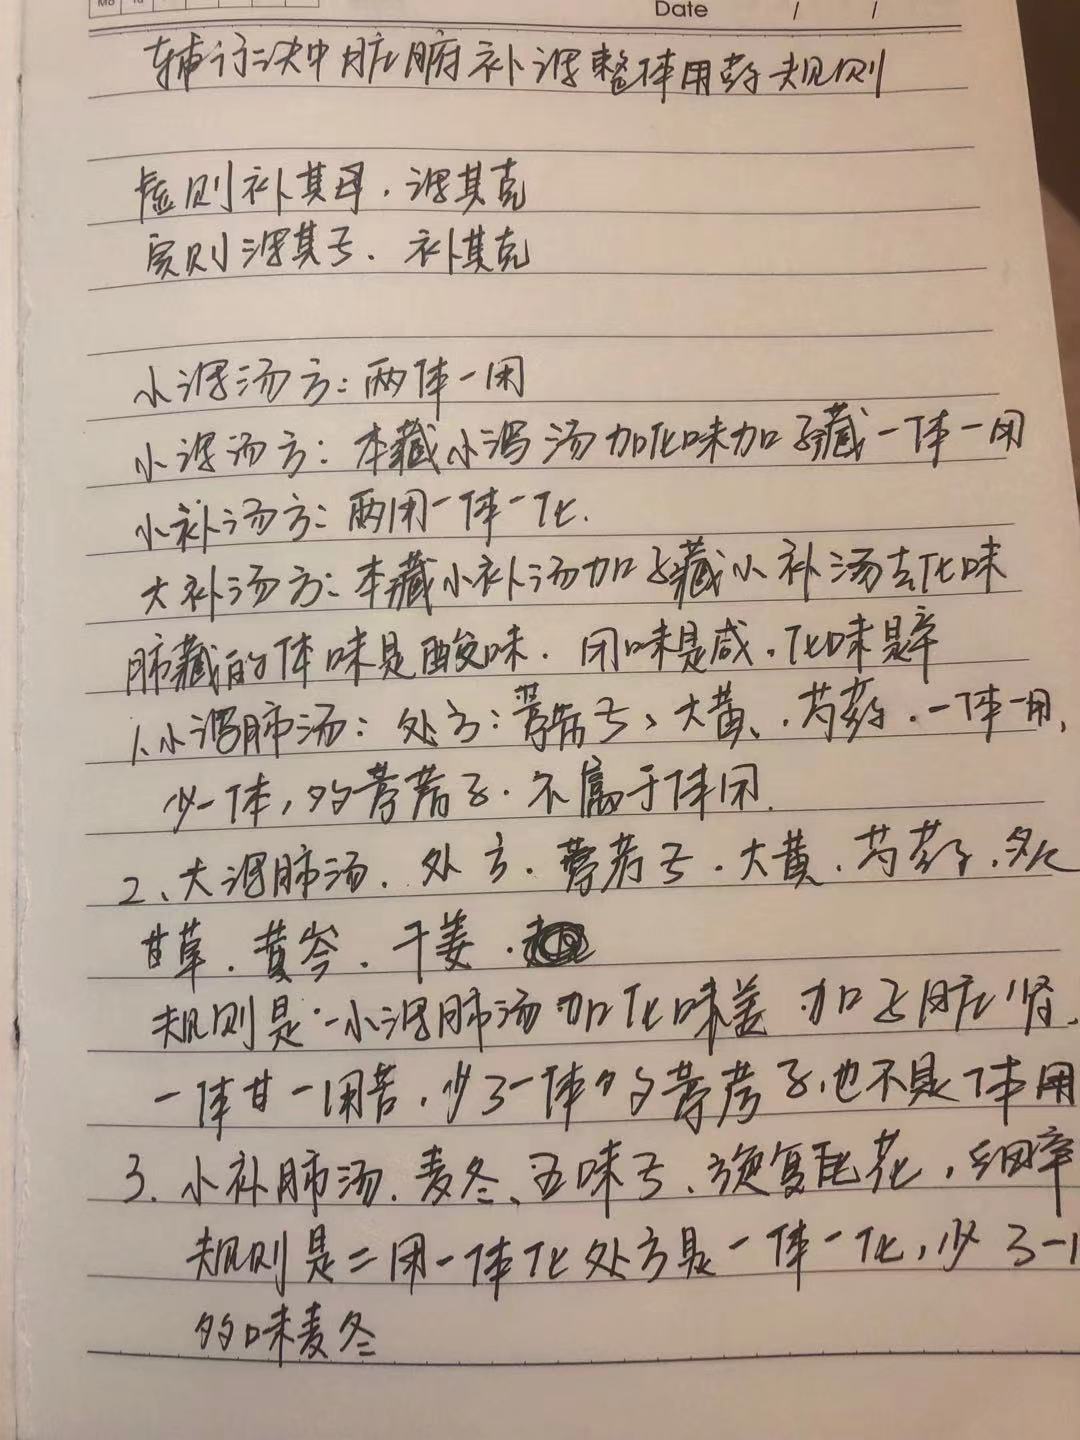 Mo Tu
Date / /
辅行决中脏腑补泻整体用药规则
虚则补其母.泻其克
实则泻其子.补其克
小泻汤方:两体一用
小泻汤方:本藏小泻汤加化味加子藏一体一用
小补汤方:两用一体一化.
大补汤方:本藏小补汤加子藏小补汤去化味
肺藏的体味是酸味.用味是咸.化味是辛
1.小泻肺汤:处方:葶苈子、大黄、.芍药.一体一用,
少一体,多葶苈子.不属于体用.
2、大泻肺汤.处方.葶苈子.大黄.芍药.炙
甘草.黄岑.干姜.
规则是:小泻肺汤加化味姜 加子脏肾.
一体甘一用苦.少了一体多葶苈子,也不是体用
3.小补肺汤.麦冬、五味子、旋复花,细辛
规则是二用一体化处方是一体一化,少了一
多味麦冬